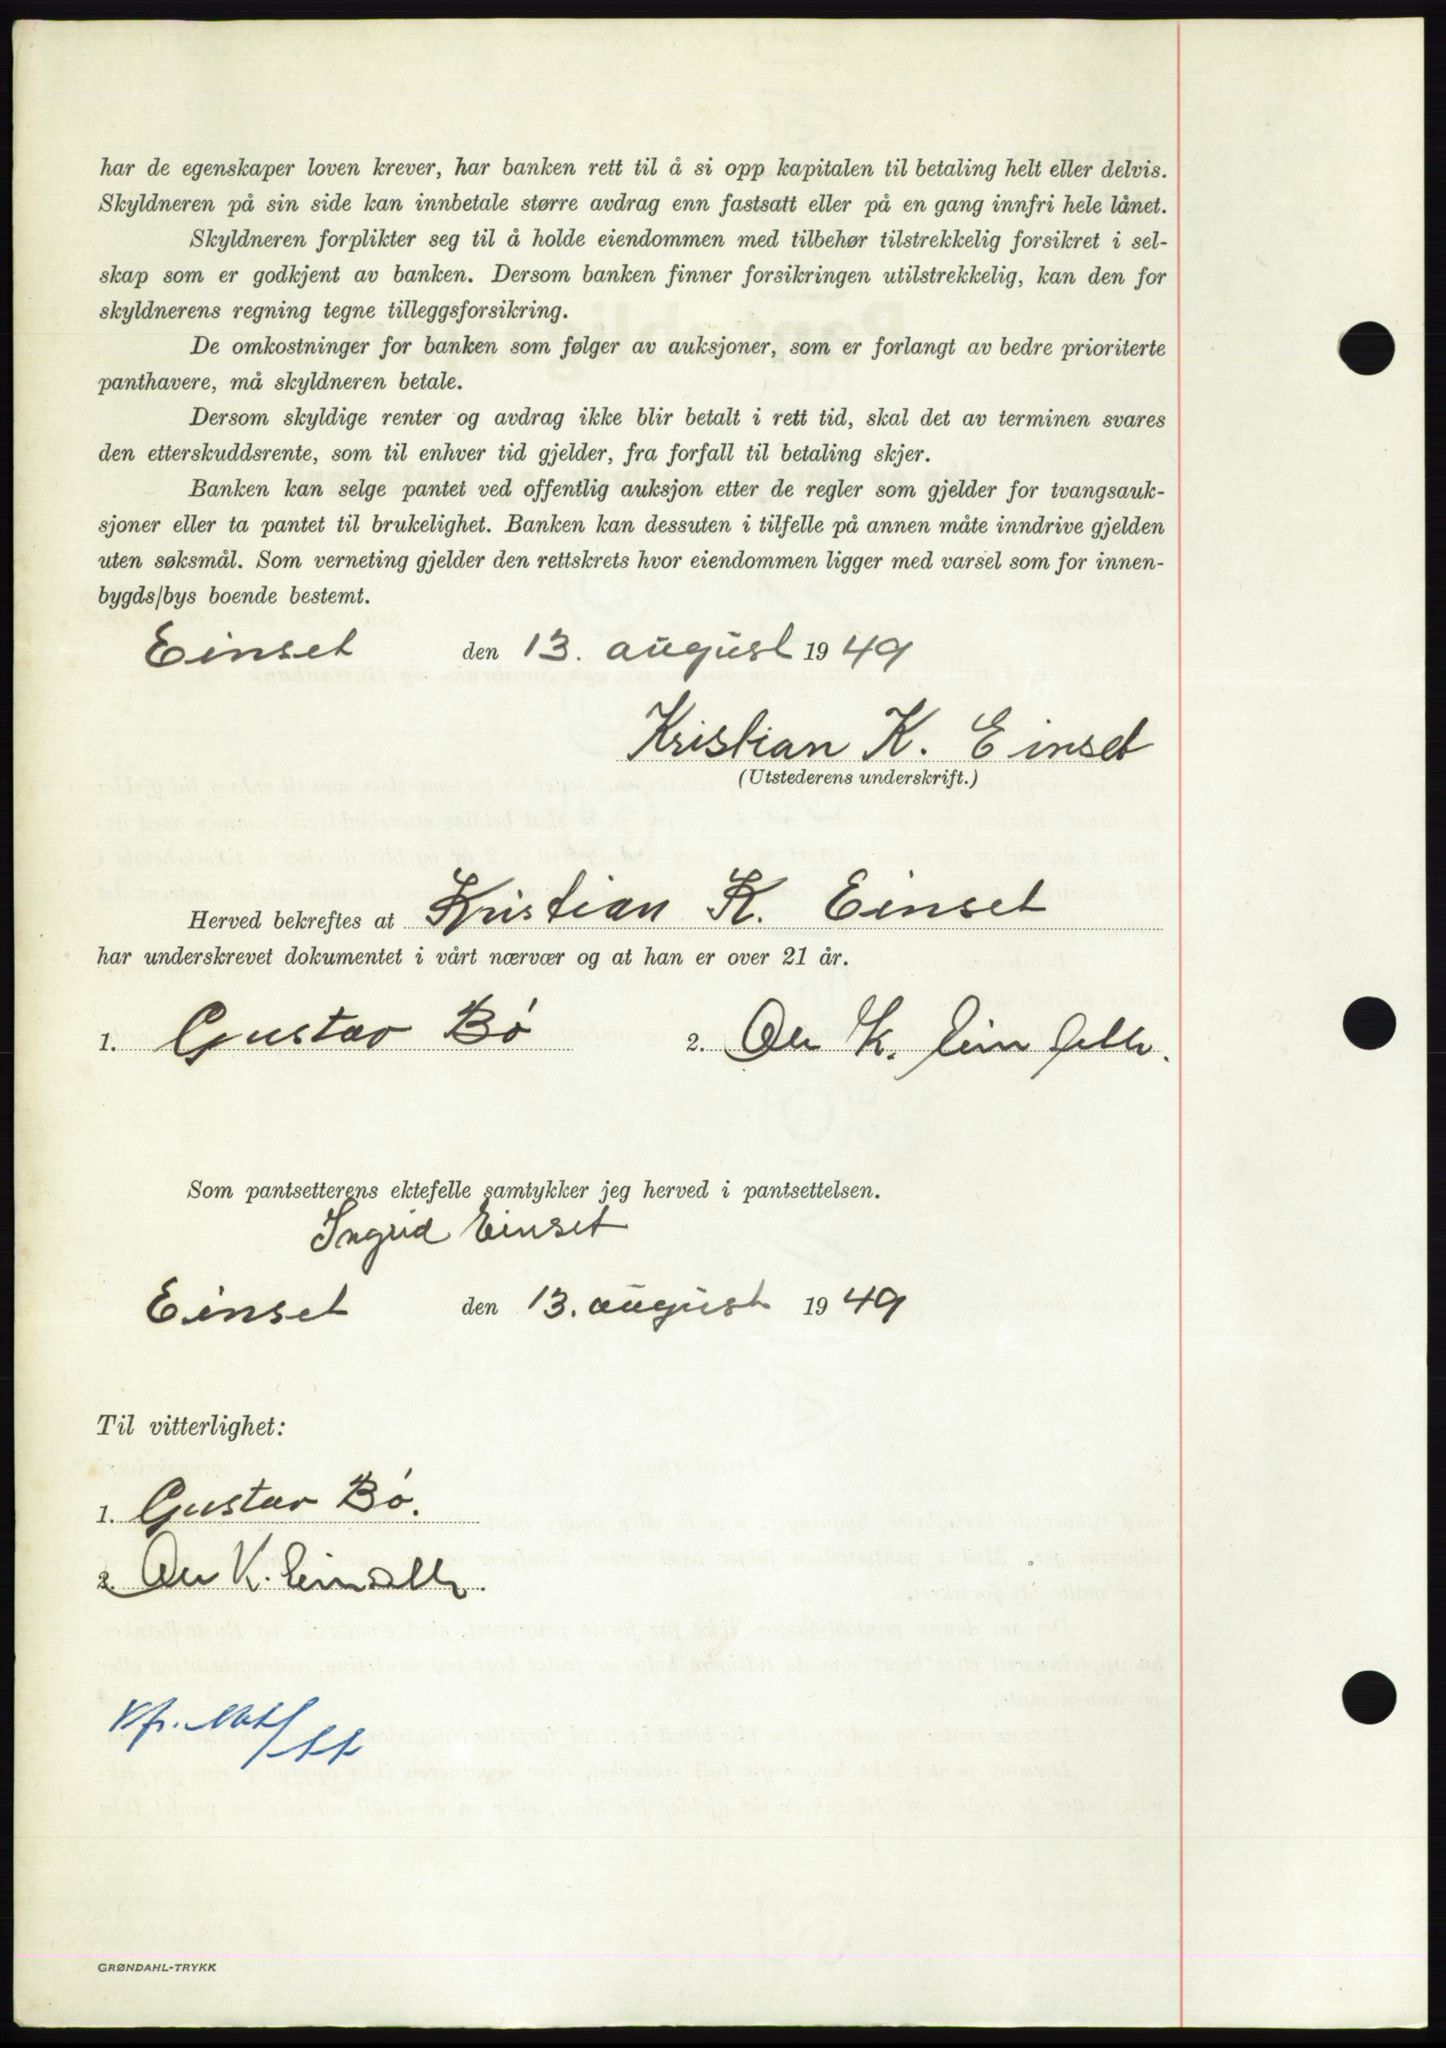 har de egenskaper loven krever, har banken rett til å si opp kapitalen til betaling helt eller delvis.
Skyldneren på sin side kan innbetale større avdrag enn fastsatt eller på en gang innfri hele lånet.
Skyldneren forplikter seg til å holde eiendommen med tilbehør tilstrekkelig forsikret i sel-
skap som er godkjent av banken. Dersom banken finner forsikringen utilstrekkelig, kan den for
skyldnerens regning tegne tilleggsforsikring.
De omkostninger for banken som følger av auksjoner, som er forlangt av bedre prioriterte
panthavere, må skyldneren betale.
Dersom skyldige renter og avdrag ikke blir betalt i rett tid, skal det av terminen svares
den etterskuddsrente, som til enhver tid gjelder, fra forfall til betaling skjer.
Banken kan selge pantet ved offentlig auksjon etter de regler som gjelder for tvangsauk-
sjoner eller ta pantet til brukelighet. Banken kan dessuten i tilfelle på annen måte inndrive gjelden
uten søksmål. Som verneting gjelder den rettskrets hvor eiendommen ligger med varsel som for innen-
bygds/bys boende bestemt.
Einset den 13. august 1949
Kristian K. Einset
(Utstederens underskrift.)
Herved bekreftes at Kristian K. Einset
har underskrevet dokumentet i vårt nærvær og at han er over 21 år.
1. Gustav Bø 2. K.
Som pantsetterens ektefelle samtykker jeg herved i pantsettelsen.
Ingrid Einset
Einset den 13. august 1949
Til vitterlighet:
1. Gustav Bø.
2. K.
GRØNDAHL-TRYKK